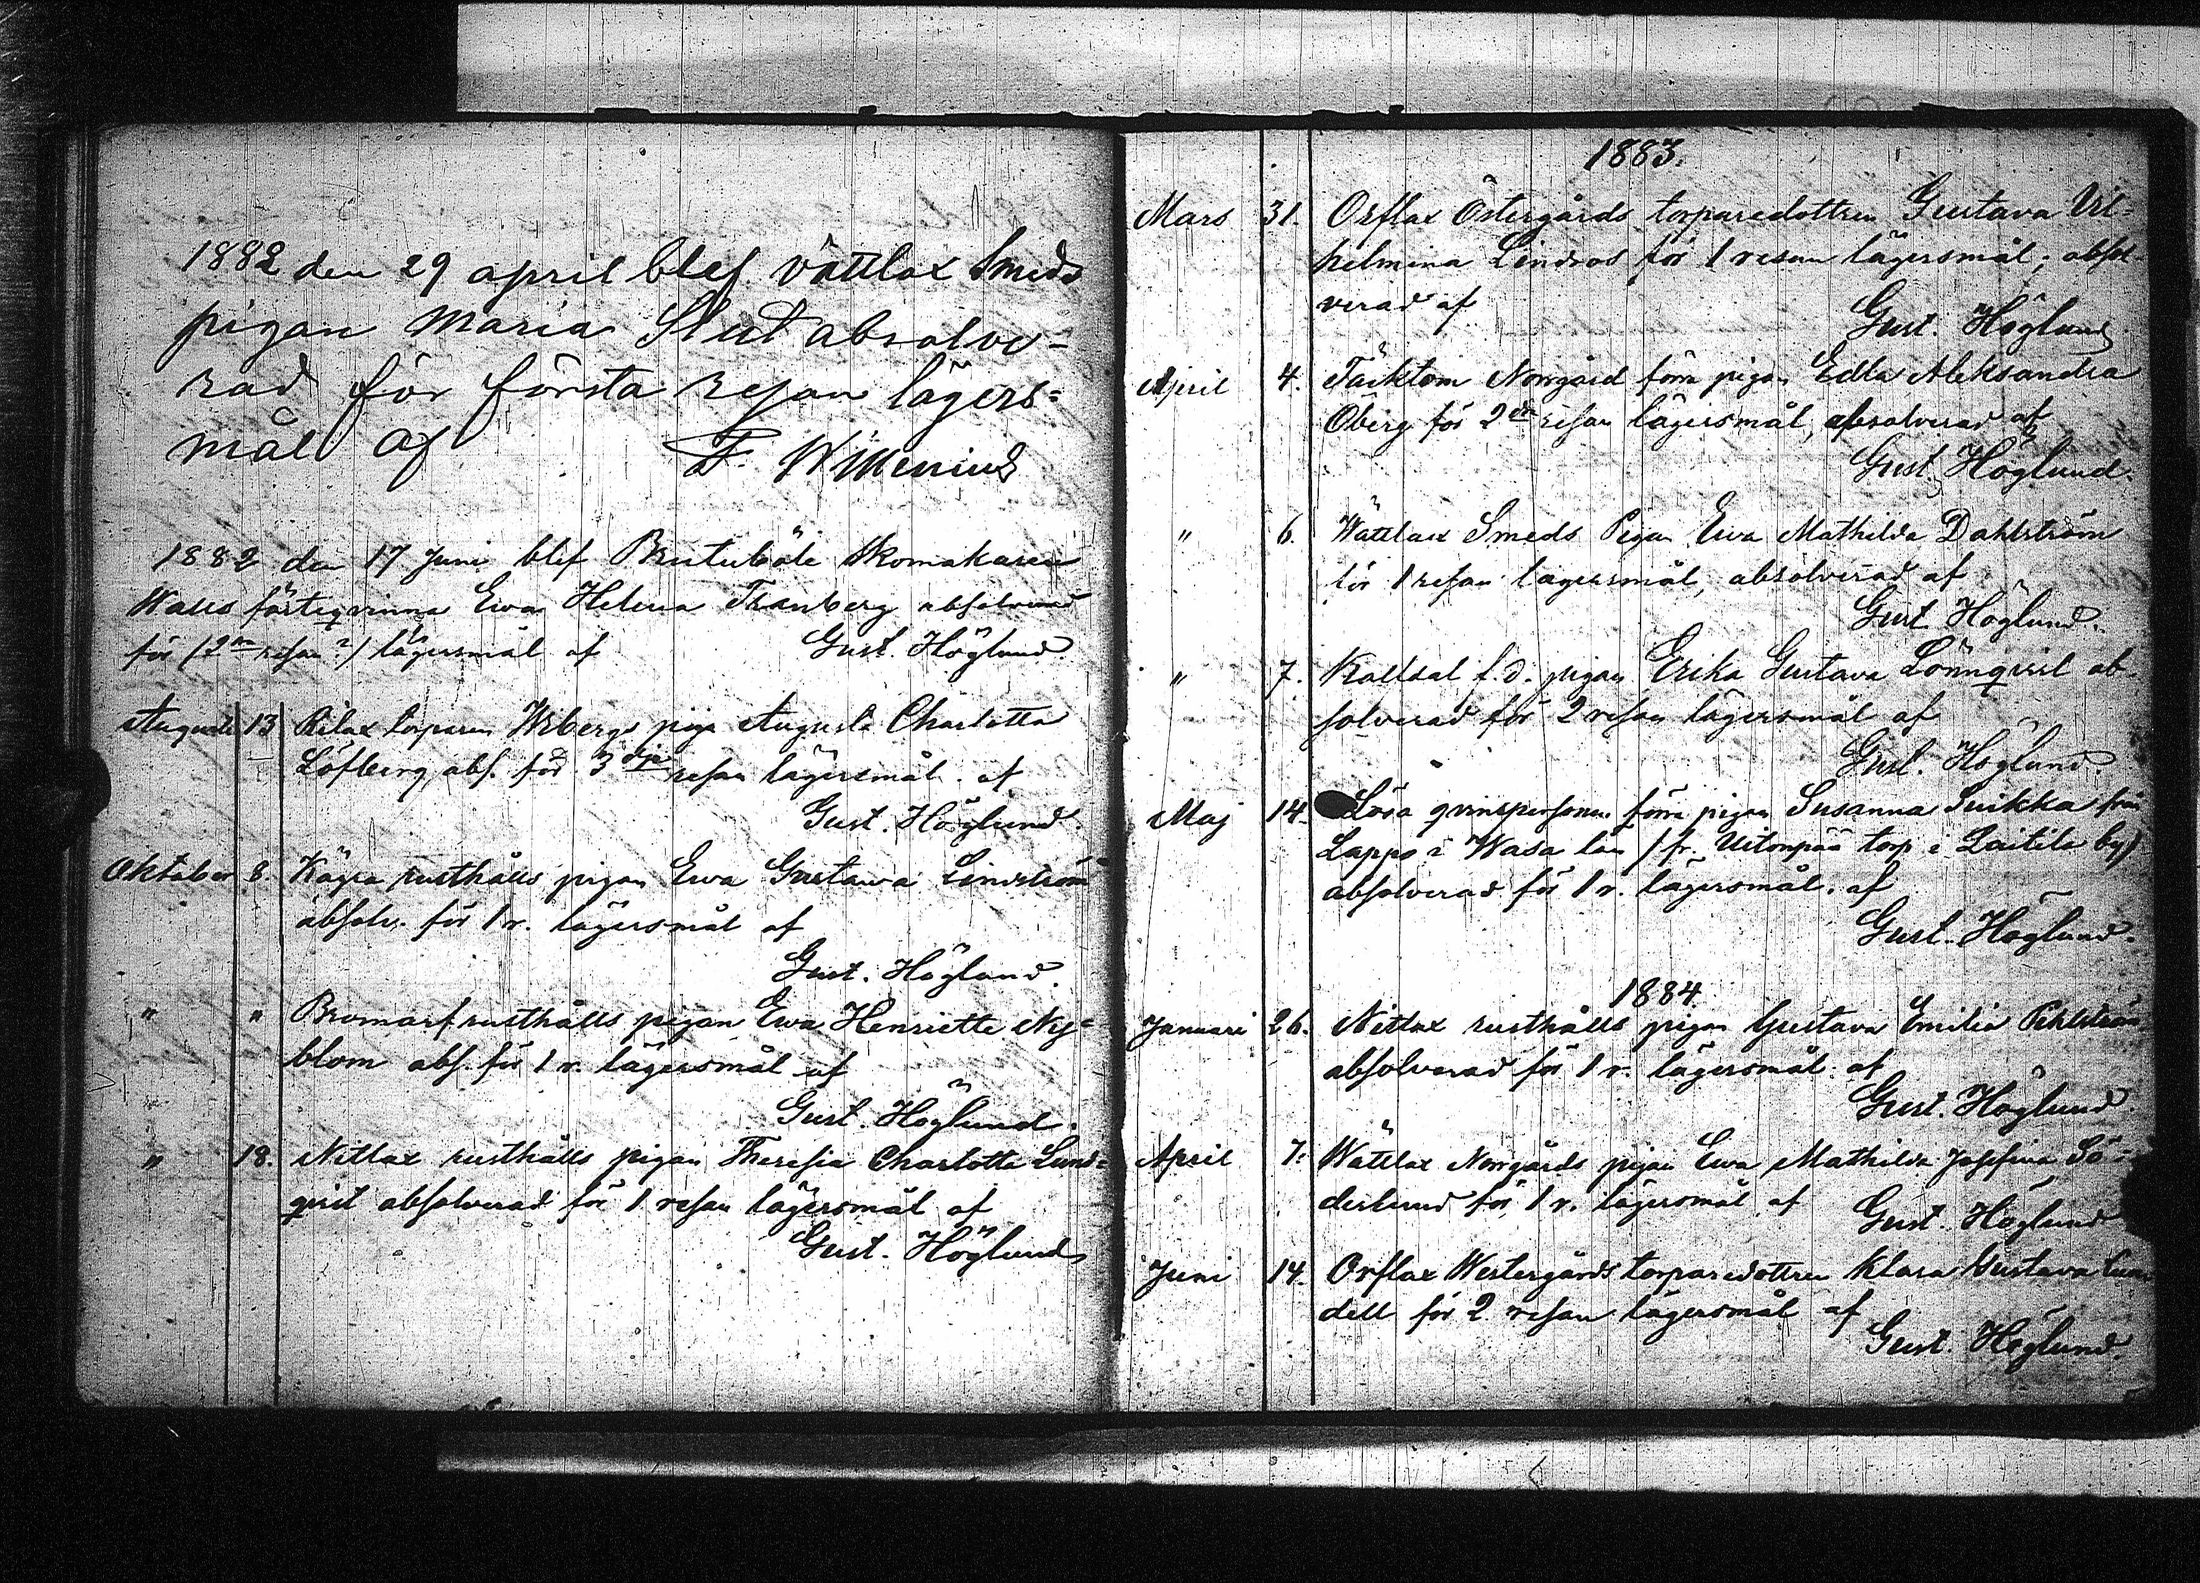 1882 den 29 april blef Vättlax Smeds
pigan Maria Slut absolve=
rad för första resan lägers=
mål af F. Willenius
1882 den 17 Juni blef Brutuböle Skomakaren
Walls fästeqvinna Ewa Helena Tranberg absolverad
för (2dra resan?) lägersmål af Gust. Höglund.
Augusti 13 Rilax torparen Wibergs piga Augusta Charlotta
Löfberg abs. för 3dje resan lägersmål af
Gust. Höglund
Oktober 8. Kägra rusthålls pigan Ewa Gustawa Lindström
absolv. för 1 r. lägersmål af
Gust. Höglund.
" " Bromarf rusthålls pigan Ewa Henriette Ny=
blom abs. för 1 r. lägersmål af
Gust. Höglund.
" 18. Nitlax rusthålls pigan Theresia Charlotte Lund=
qvist absolverad för 1 resan lägersmål af
Gust. Höglund
1883.
Mars 31. Orflax Östergårds torparedottren Gustava Vil=
helmina Lindros för 1 resan lägersmål; absol=
verad af
Gust. Höglund
April 4. Täcktom Norrgård förra pigan Edla Aleksandra
Öberg för 2dra resan lägersmål, absolverad af
Gust. Höglund.
" 6. Wättlax Smeds Pigan Ewa Mathilda Dahlström
för 1 resan lägersmål, absolverad af
Gust Höglund.
" 7. Kallsal f.d. pigan Erika Gustava Lönnqvist ab=
solverad för 2 resan lägersmål af
Gust. Höglund.
Maj 14. Lösa qvinspersonen förra pigan Susanna Luikka från
Lappo i Wasa län (fr. Uitonpää torp i Laitila by)
absolverad för 1 r. lägersmål. af
Gust. Höglund.
1884.
Januari 26. Nitlax rusthålls pigan Gustava Emilia Pihlström
absolverad för 1 r. lägersmål. af
Gust. Höglund.
April 7. Wättlax Norrgårds pigan Ewa Mathilda Josefina Sö=
derlund för 1 r. lägersmål af Gust. Höglund
Juni 14. Orflax Westergårds torparedottren Klara Gustava
dell för 2 resan lägersmål af
Gust. Höglund.